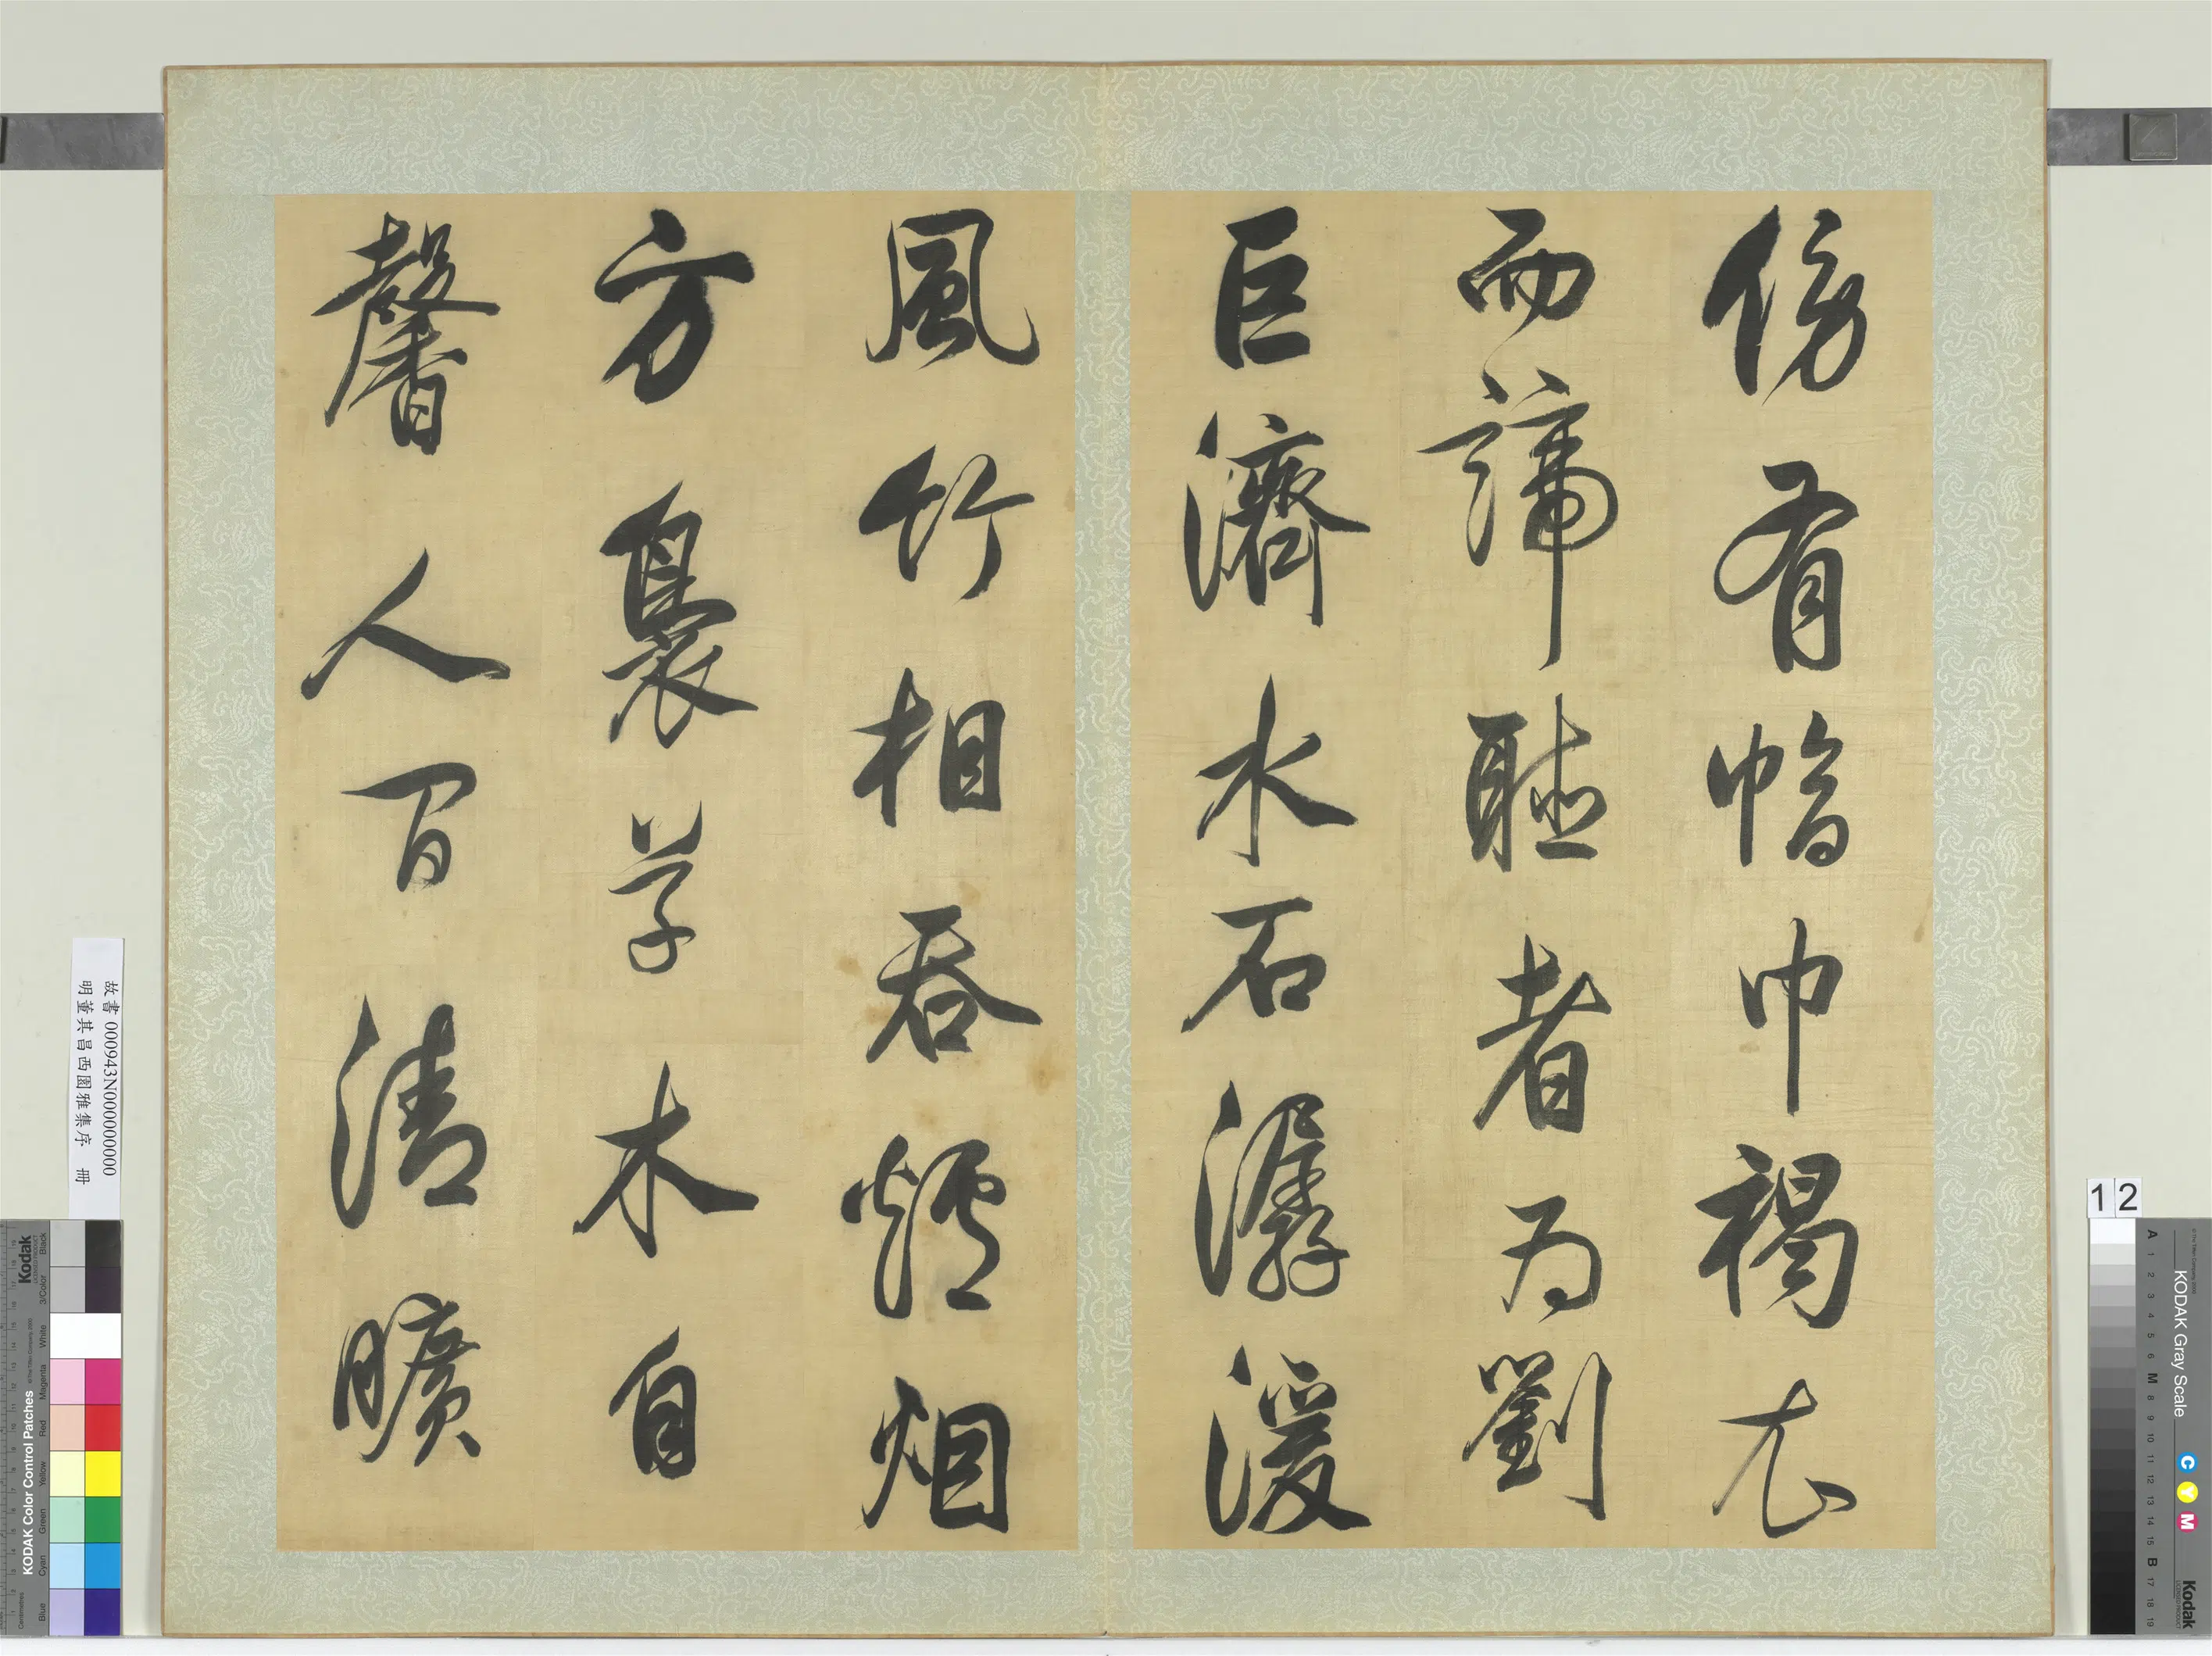 傍有幅巾褐衣
而諦聽者為劉
巨濟水石潺湲
風竹相吞爐烟
方裊草木自
馨人間清曠
故書 000943N000000000
明董其昌西園雅集序 冊
12
KODAK Gray Scale
C Y M
Kodak
A 1 2 3 4 5 6 M 8 9 10 11 12 13 14 15 B 17 18 19
Kodak
KODAK Color Control Patches
Blue Cyan Green Yellow Red Magenta White 3/Color Black
Centimetres